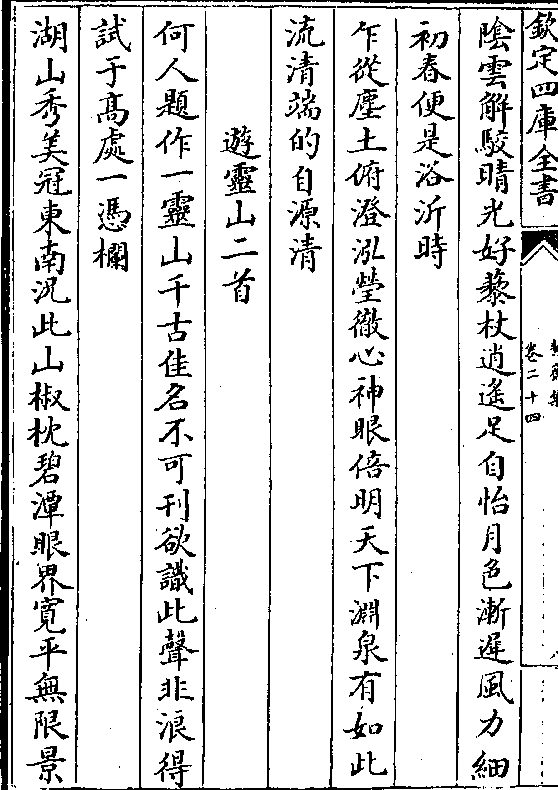 欽定四庫全書
卷二十四
陰雲解駮晴光好藜杖逍遙足自怡月色漸遲風力細
初春便是浴沂時
乍從塵土俯澄泓瑩徹心神眼倍明天下淵泉有如此
流清端的自源清
遊靈山二首
何人題作一靈山千古佳名不可刊欲識此聲非浪得
試于髙處一憑欄
湖山秀美冠東南況此山椒枕碧潭眼界寛平無限景